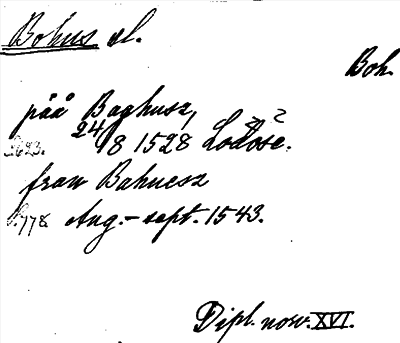 Bohus sl.
Boh.
påå Baghusz,
24/8 1528 Lodose.
fran Bahuesz
Aug.-sept. 1543.
Dipl. norv. XVI.